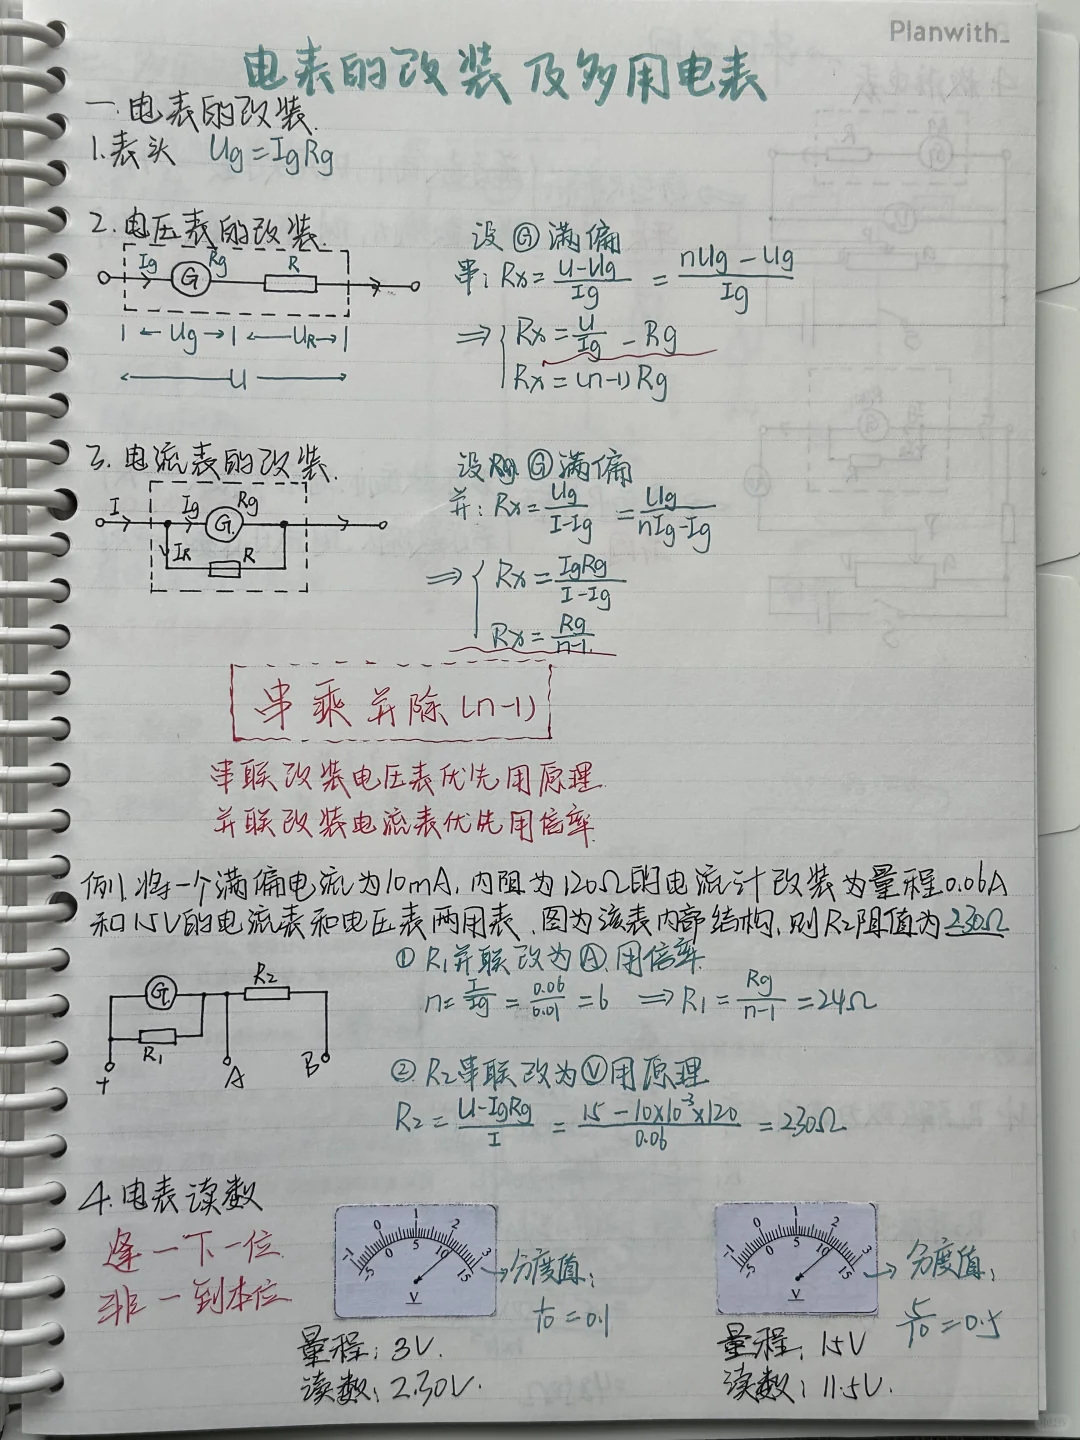 Planwith_
电表的改装及多用电表
一.电表的改装.
1.表头 Ug=IgRg
2.电压表的改装.
Ig Rg R
G
Ug UR
U
设Ⓖ满偏
串: Rx=(U-Ug)/Ig = (nUg-Ug)/Ig
⇒ { Rx=U/Ig - Rg
Rx=(n-1)Rg
3.电流表的改装.
I Ig Rg
G
IR R
设Ⓖ满偏
并: Rx=Ug/(I-Ig) = Ug/(nIg-Ig)
⇒ { Rx=IgRg/(I-Ig)
Rx=Rg/(n-1)
串乘并除(n-1)
串联改装电压表优先用原理.
并联改装电流表优先用倍率.
例1.将一个满偏电流为10mA,内阻为120Ω的电流计改装为量程0.06A
和15V的电流表和电压表两用表.图为该表内部结构,则R2阻值为230Ω
G R2
R1
+ A B
① R1并联改为Ⓐ,用倍率.
n=I/Ig=0.06/0.01=6 ⇒R1=Rg/(n-1)=24Ω
② R2串联改为Ⓥ用原理
R2=(U-IgRg)/I=(15-10×10⁻³×120)/0.06=230Ω
4.电表读数
逢一下一位.
非一到本位.
-1 0 1 2 3
-5 0 5 10 15
V
→分度值:
1/10=0.1
量程:3V.
读数:2.30V.
-1 0 1 2 3
-5 0 5 10 15
V
→分度值:
5/10=0.5
量程:15V
读数:11.5V.